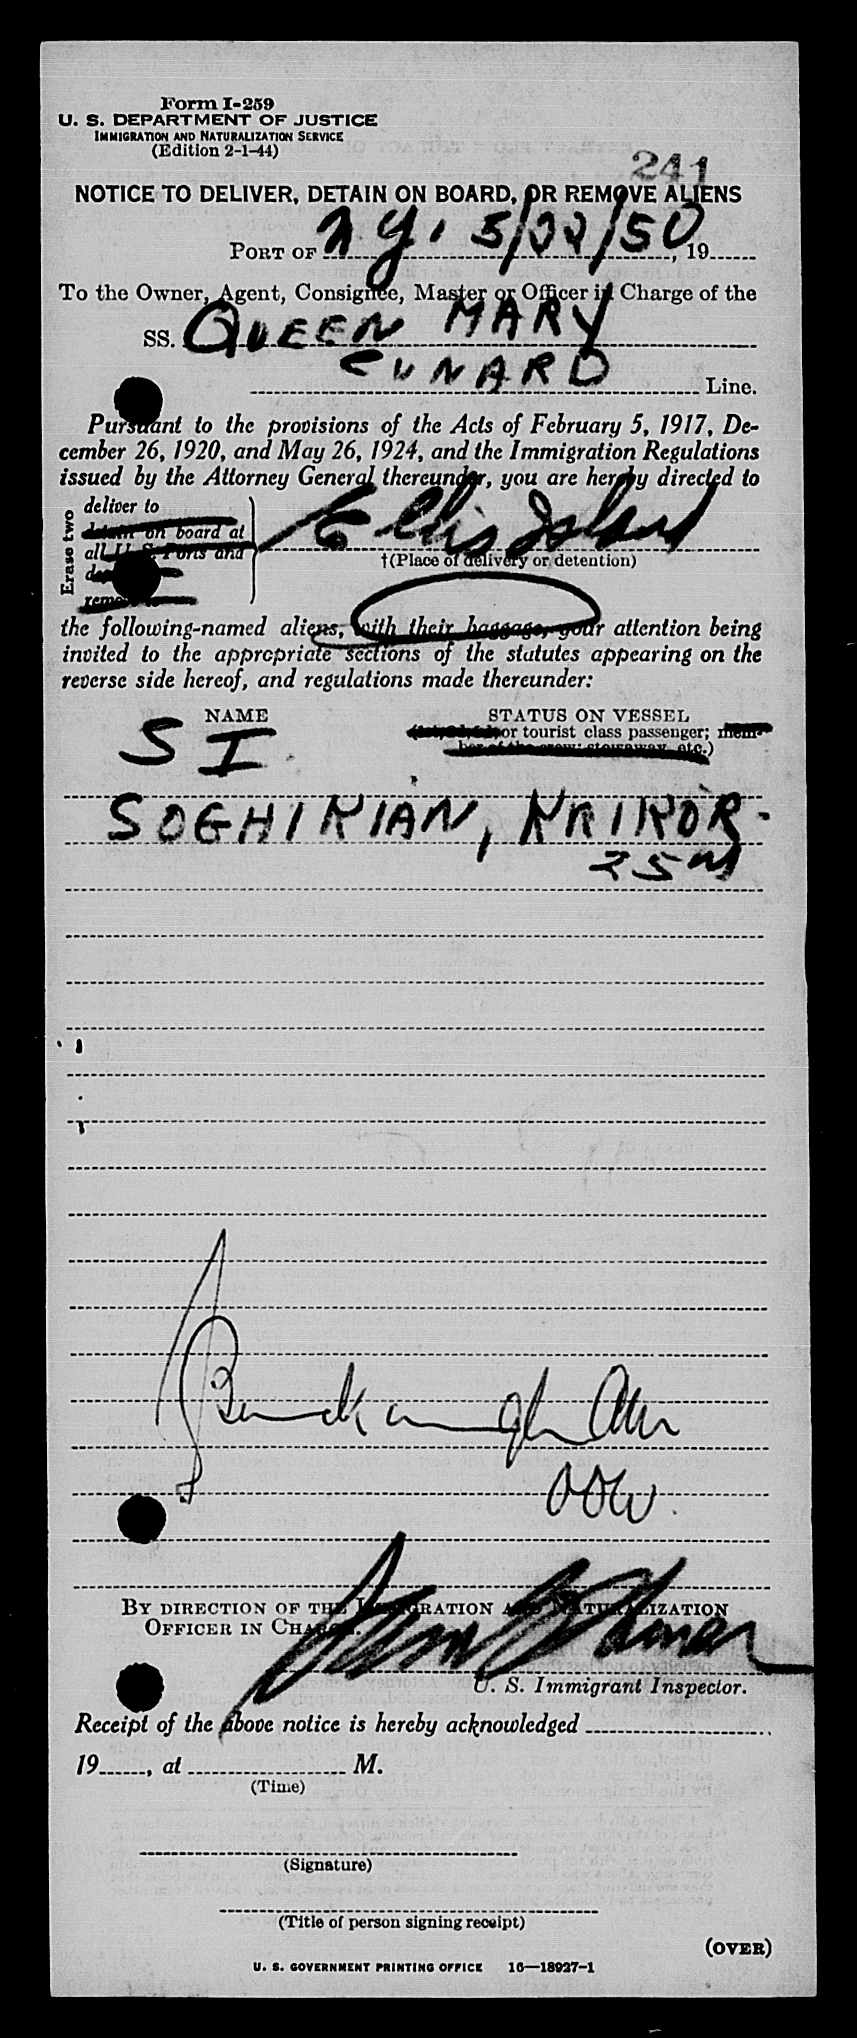 Form I-259
U. S. DEPARTMENT OF JUSTICE
IMMIGRATION AND NATURALIZATION SERVICE
(Edition 2-1-44)
241
NOTICE TO DELIVER, DETAIN ON BOARD, OR REMOVE ALIENS
PORT OF N Y. 5/22/50, 19
To the Owner, Agent, Consignee, Master or Officer in Charge of the
SS. QUEEN MARY
CUNARD Line.
Pursuant to the provisions of the Acts of February 5, 1917, De-
cember 26, 1920, and May 26, 1924, and the Immigration Regulations
issued by the Attorney General thereunder, you are hereby directed to
Erase two
deliver to
detain on board at
all U. S. Ports and
remove to
Ellis Island
†(Place of delivery or detention)
the following-named aliens, with their baggage, your attention being
invited to the appropriate sections of the statutes appearing on the
reverse side hereof, and regulations made thereunder:
NAME STATUS ON VESSEL
or tourist class passenger; mem-
ber of the crew; stowaway, etc.)
S I
SOGHIKIAN, KRIKOR
25 M
OOW.
BY DIRECTION OF THE IMMIGRATION AND NATURALIZATION
OFFICER IN CHARGE.
U. S. Immigrant Inspector.
Receipt of the above notice is hereby acknowledged
19, at M.
(Time)
(Signature)
(Title of person signing receipt)
(OVER)
U. S. GOVERNMENT PRINTING OFFICE 16—18927-1